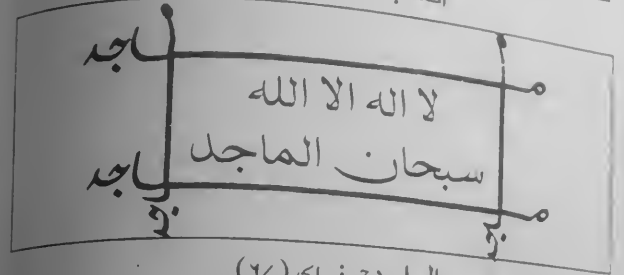 ماجد
لا اله الا الله
سبحان الماجد
ماجد